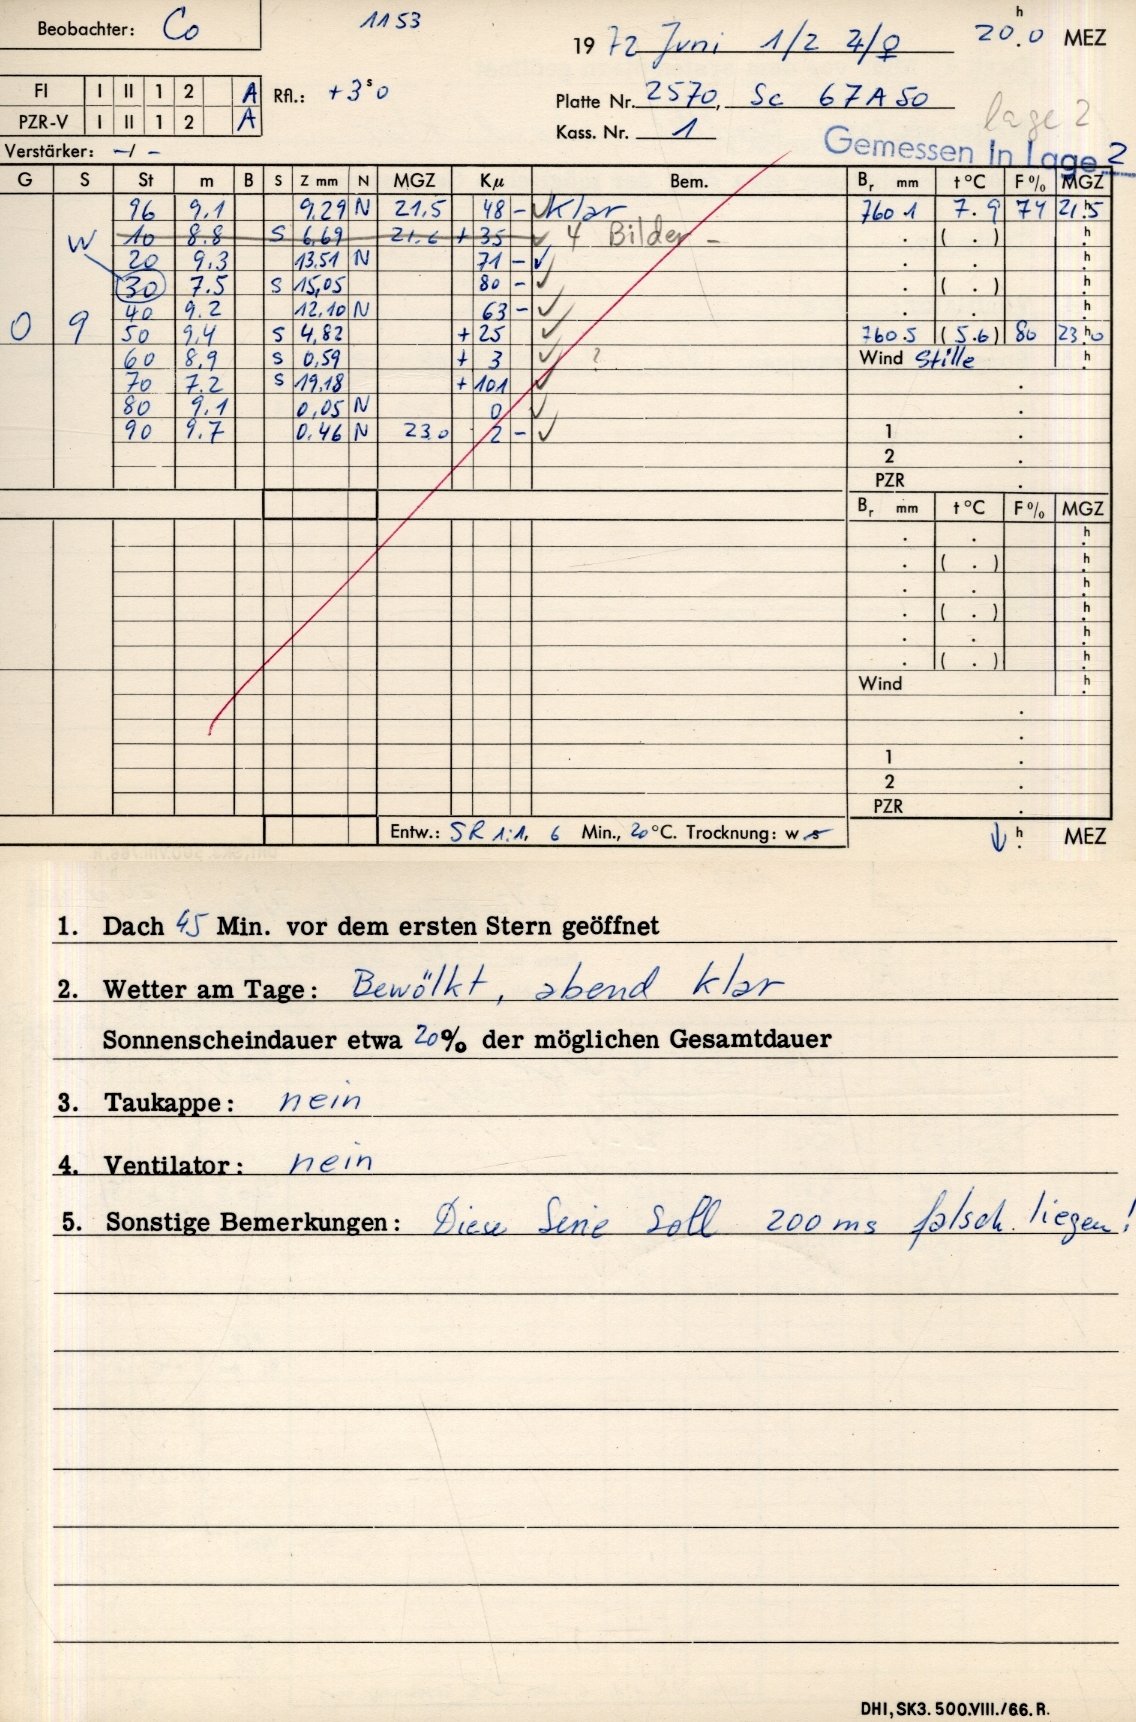 Beobachter: Co 1153
19 72 Juni 1/2 ♃/♀ 20h.0 MEZ
FI I II 1 2 A Rfl.: +3s0
PZR-V I II 1 2 A
Platte Nr. 2570, Sc 67A50
Kass. Nr. 1
Lage 2
Verstärker: -/-
Gemessen in Lage 2
G S St m B S Z mm N MGZ Kμ Bem. Br mm t°C F% MGZ
96 9.1 9.29 N 21.5 48 - ✓ Klar 760.1 7.9 74 21h.5
W 10 8.8 S 6.69 21.6 + 35 - ✓ 4 Bilder - . ( . ) h.
20 9.3 13.51 N 71 - ✓ . . h.
30 7.5 S 15,05 80 - ✓ . ( . ) h.
40 9.2 12.10 N 63 - ✓ . . h.
0 9 50 9,4 S 4,82 + 25 ✓ 760.5 ( 5.6 ) 80 23h.0
60 8,9 S 0,59 + 3 ✓ ? Wind Stille h
70 7.2 S 19,18 + 101 ✓ .
80 9.1 0,05 N 0 ✓ .
90 9.7 0.46 N 23.0 2 - ✓ 1 .
2 .
PZR .
Br mm t°C F% MGZ
. . h.
. ( . ) h.
. . h.
. ( . ) h.
. . h.
. ( . ) h.
Wind h.
.
.
1 .
2 .
PZR .
Entw.: SR 1:1, 6 Min., 20°C. Trocknung: w s ↓ h. MEZ
1. Dach 45 Min. vor dem ersten Stern geöffnet
2. Wetter am Tage: Bewölkt, abend klar
Sonnenscheindauer etwa 20% der möglichen Gesamtdauer
3. Taukappe: nein
4. Ventilator: nein
5. Sonstige Bemerkungen: Diese Serie soll 200 ms falsch liegen!
DHI, SK3. 500.VIII./66. R.